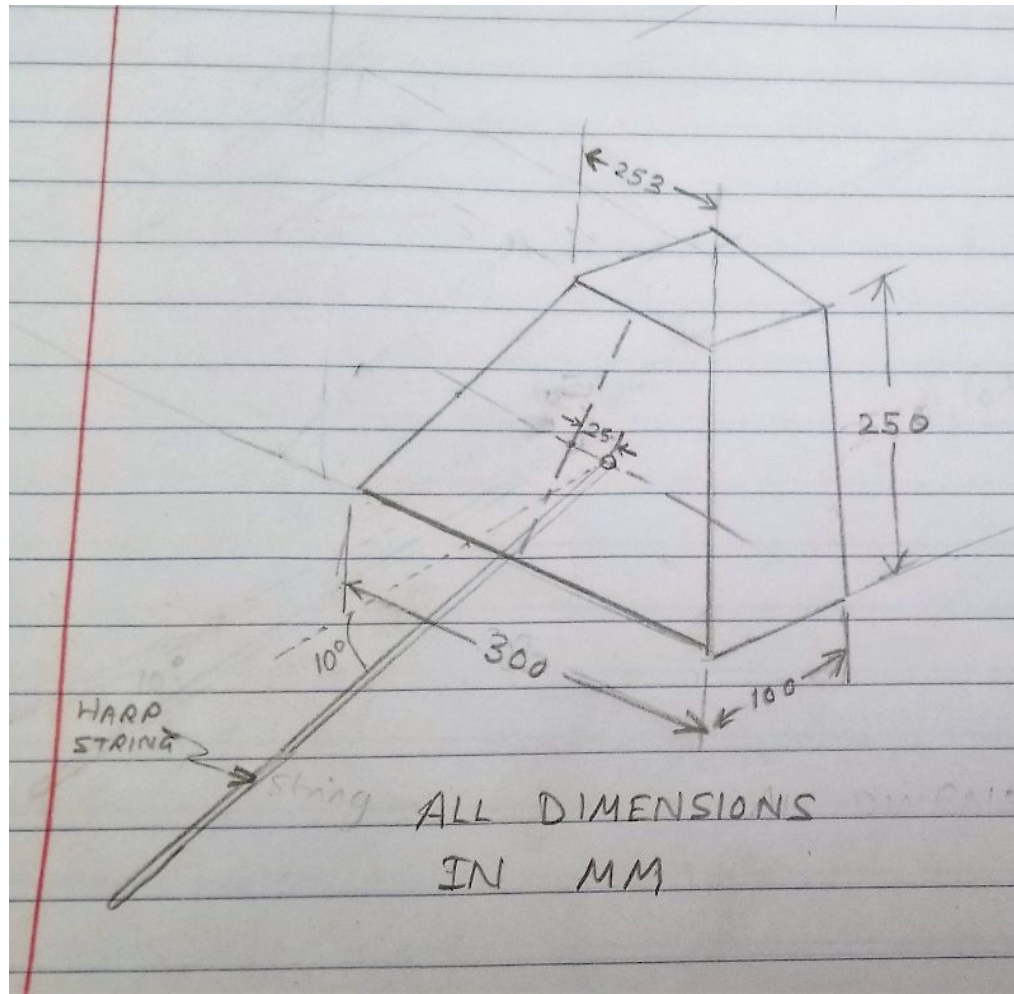 253
250
25
10°
300
100
HARP
STRING
String
ALL DIMENSIONS
IN MM